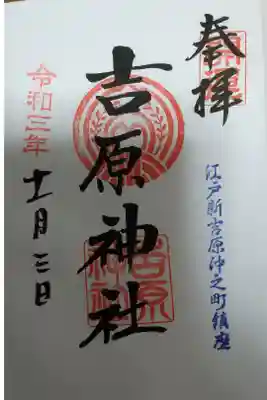 開運
奉拝
江戸新吉原仲之町鎮座
吉原神社
吉原神社
令和三年
十一月三日